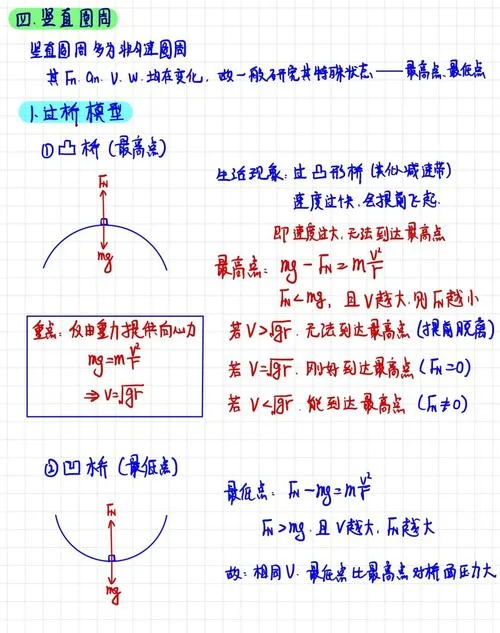 四.竖直圆周
竖直圆周多为非匀速圆周
其Fn.an.v.w.均在变化,故一般研究其特殊状态——最高点.最低点
1.过桥模型
①凸桥(最高点)
FN
mg
生活现象:过凸形桥(类似减速带)
速度过快,会提前飞起.
即速度过大,无法到达最高点
最高点: mg-FN=m v²/r
FN<mg, 且v越大,则FN越小
重点: 仅由重力提供向心力
mg=m v²/r
⇒ v=√gr
若 v>√gr. 无法到达最高点(提前脱离)
若 v=√gr. 刚好到达最高点(FN=0)
若 v<√gr. 能到达最高点(FN≠0)
②凹桥(最低点)
FN
mg
最低点: FN-mg=m v²/r
FN>mg. 且v越大, FN越大
故:相同v. 最低点比最高点对桥面压力大